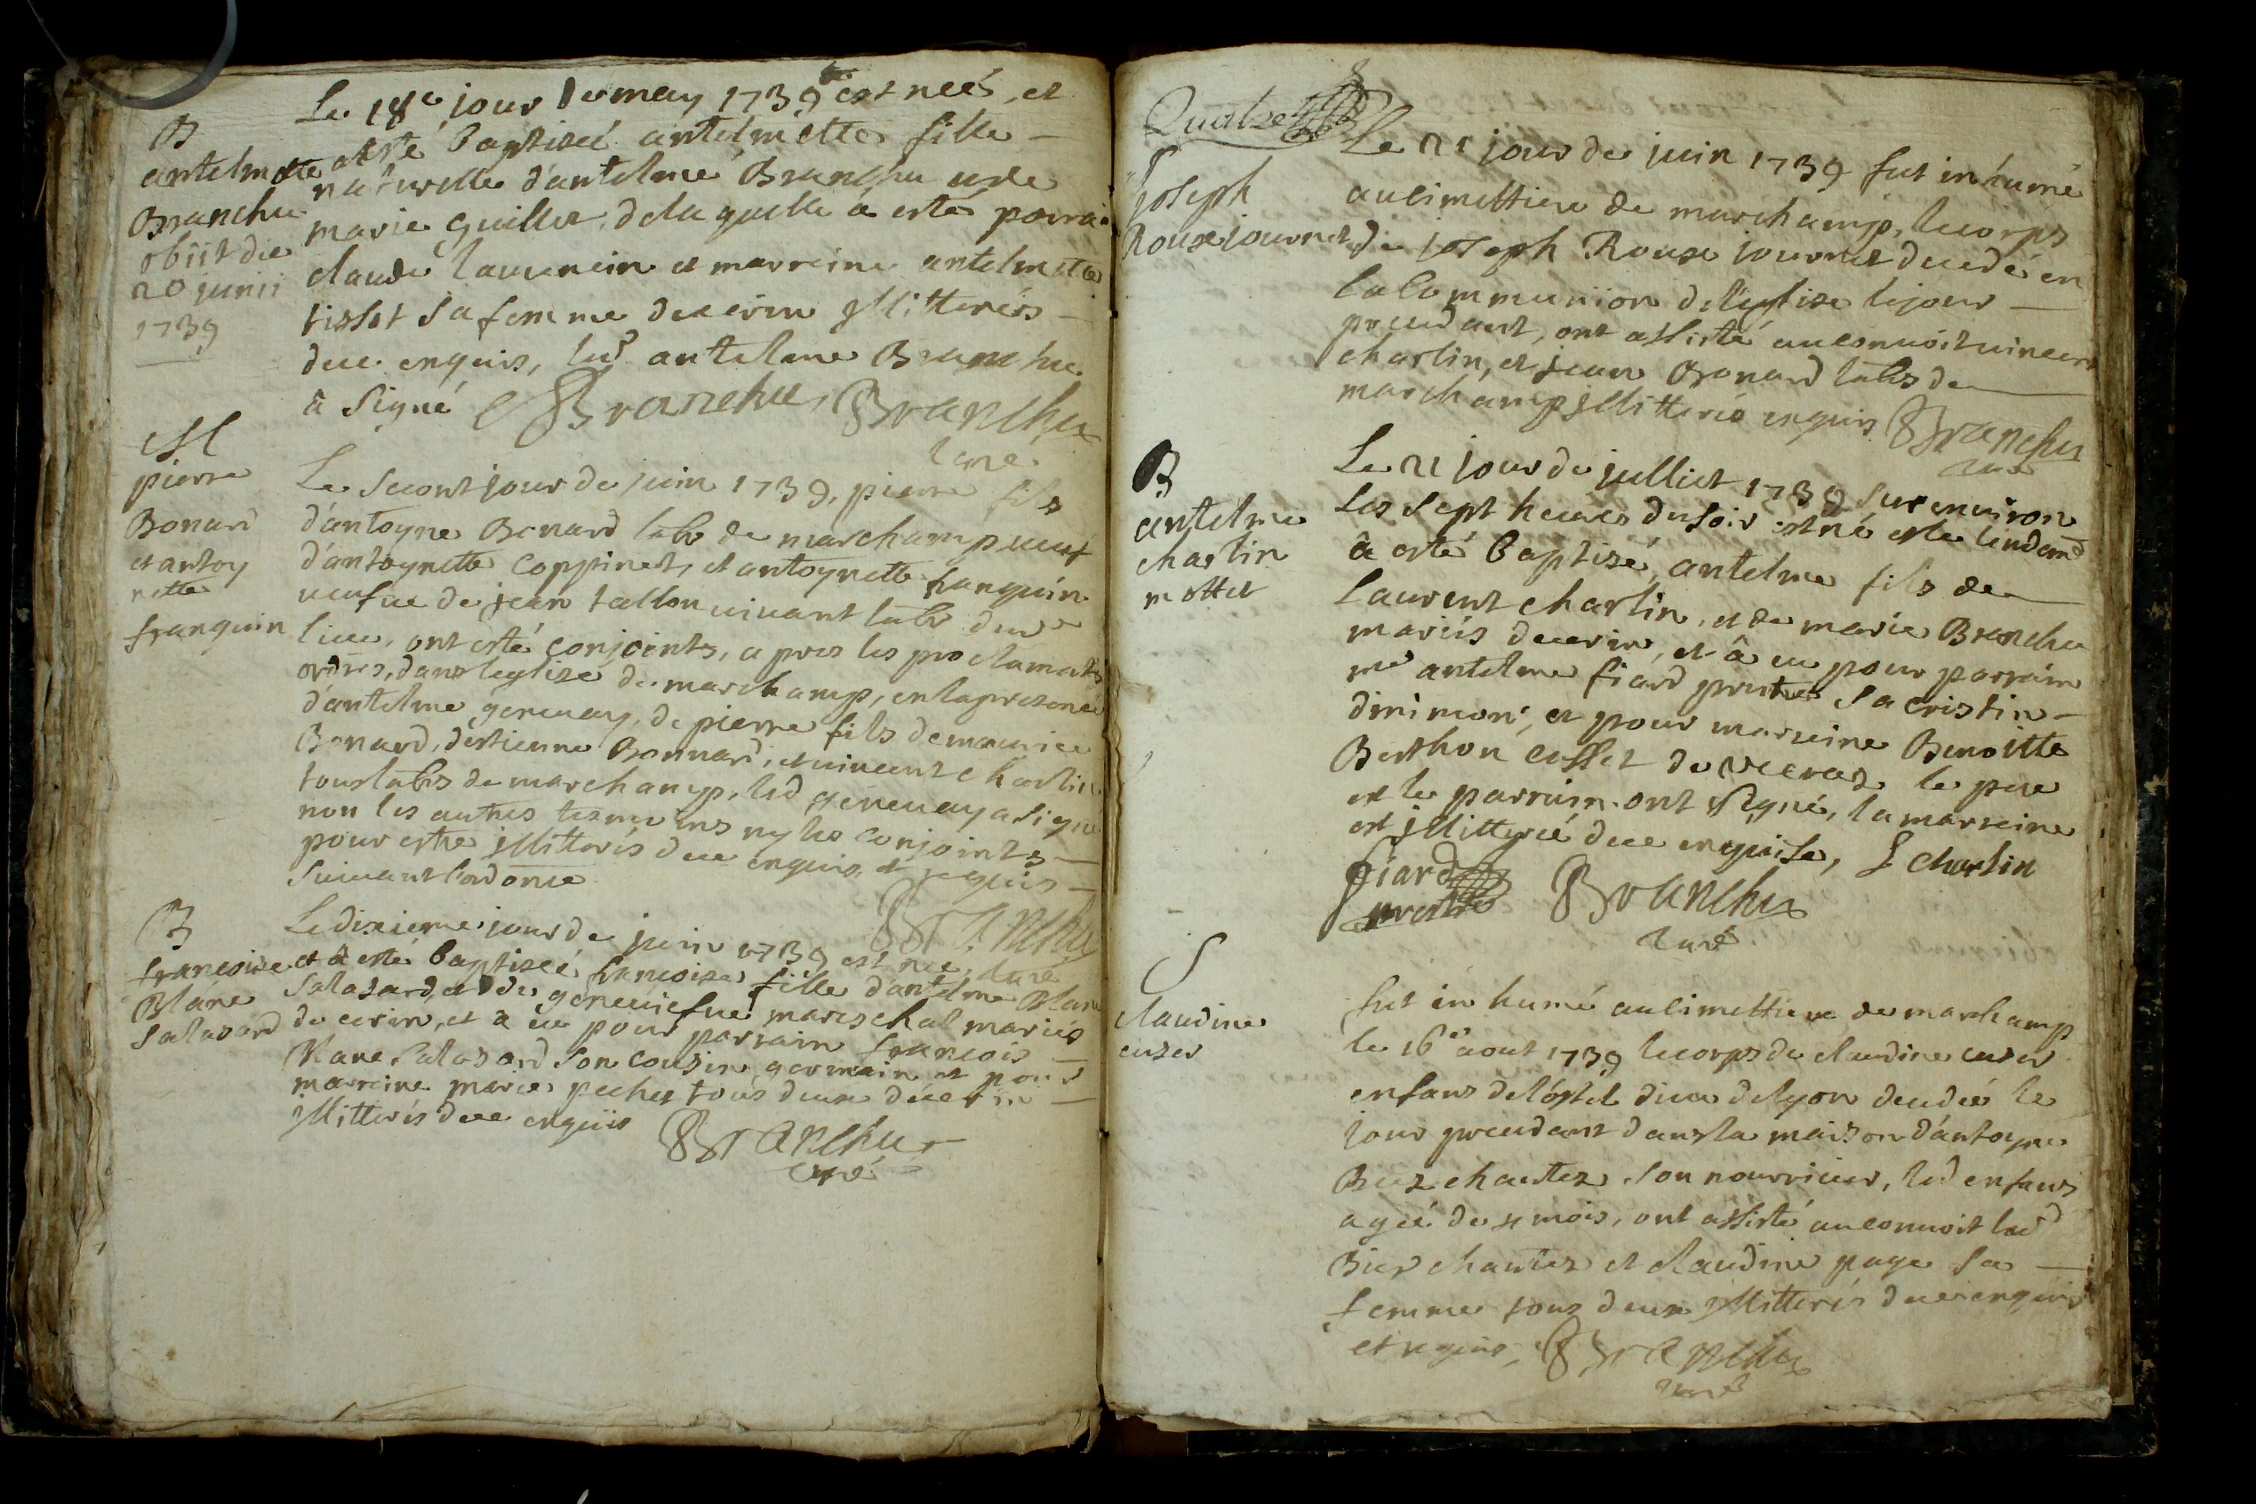 B
antelmette
Branchu
obiit die
20 junii
1739
Le 18e jour de may 1739 est neé, et
a esté baptisée antelmette fille
naturelle d'antelme Branchu et de
marie guillet, de laquelle a esté parrai
claude laurencin et marreine antelmette
tissot sa femme de cerin illitterés
de ce enquis, led antelme Branchu
à signé Branchu, Branchu
curé
M
pierre
Bonard
et antoy
nette
franquin
Le second jour de juin 1739, pierre fils
d'antoyne Bonard lab de marchamp veuf
d'antoynette Coppinet, et antoynette franquin
veufue de jean tallon vivant lab dud
lieu, ont esté conjoints, apres les proclamats
ordres, dans leglise de marchamp, en la presence
d'antelme genevay, de pierre fils de maurice
Bonard, destienne Bonnard, et vincent charlin
tous labs de marchamp, led genevay a signe
non les autres tesmoins ny les conjoints
pour estre illitterés de ce enquis et requis
suivant l'ordonce
Branchu
curé
B
francoise
Blanc
Salasard
Le dixieme jour de juin 1739 est nee,
et a esté baptiseé francoise fille d'antelme Blanc
Salasard, et de geneviefue mareschal mariés
de cerin, et a eu pour parrain francois
Blanc Salasard son cousin germain et pour
marreine marie pecher tous deux de cerin
illitterés de ce enquis Branchu
curé
Quatze
S
Joseph
Roux journet
Le 21 jour de juin 1739 fut inhumé
au cimettiere de marchamp, le corps
de joseph Roux journet decedé en
la Communion de l'eglise le jour
precedant, ont assisté au convoit vincent
charlin, et jean Bonard labs de
marchamp illitterés enquis Branchu
curé
B
antelme
charlin
mottet
Le 21 jour de julliet 1739 sur environ
les sept heures du soir est né et le lendem
a esté baptisé, antelme fils de
Laurent charlin, et de marie Branchu
mariés de cerin, et a eu pour parrain
mre antelme fiard prestre sacristin
d'inimont, et pour marreine Benoitte
Berthon cusset de le pere
et le parrain ont signé, la marreine
est illitteré de ce enquise, L charlin
fiard prestre Branchu
curé
S
claudine
cuzer
fut inhumé au cimettiere de marchamp
le 16e aout 1739 le corps de claudine cuzer
enfans de l'ostel dieu de lyon decedée le
jour precedant dans la maison d'antoyne
Biez chautez son nourricier, led enfans
ageé de 4 mois, ont assisté au convoit led
Biez chautez et claudine page sa
femme tous deux illitterés de ce enquis
et requis, Branchu
curé